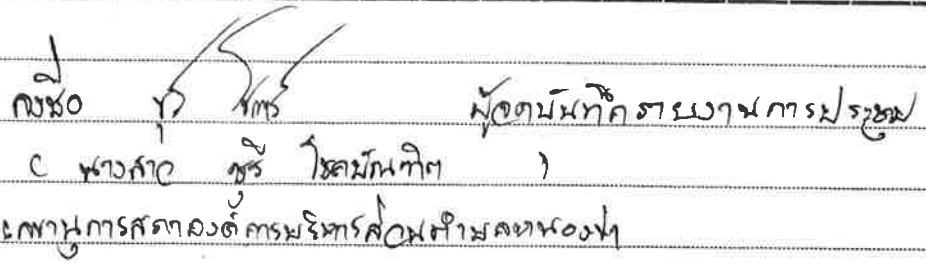 ลงชื่อ ผู้จดบันทึกรายงานการประชุม
( นางสาว ชุรี โชคบัณฑิต )
เลขานุการสภาองค์การบริหารส่วนตำบล